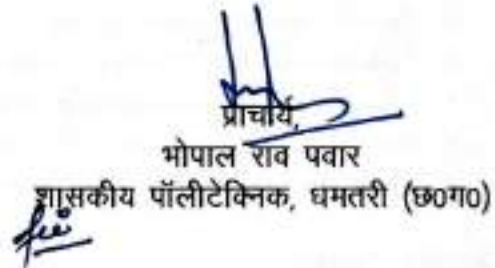 प्राचार्य,
भोपाल राव पवार
शासकीय पॉलीटेक्निक, धमतरी (छ0ग0)